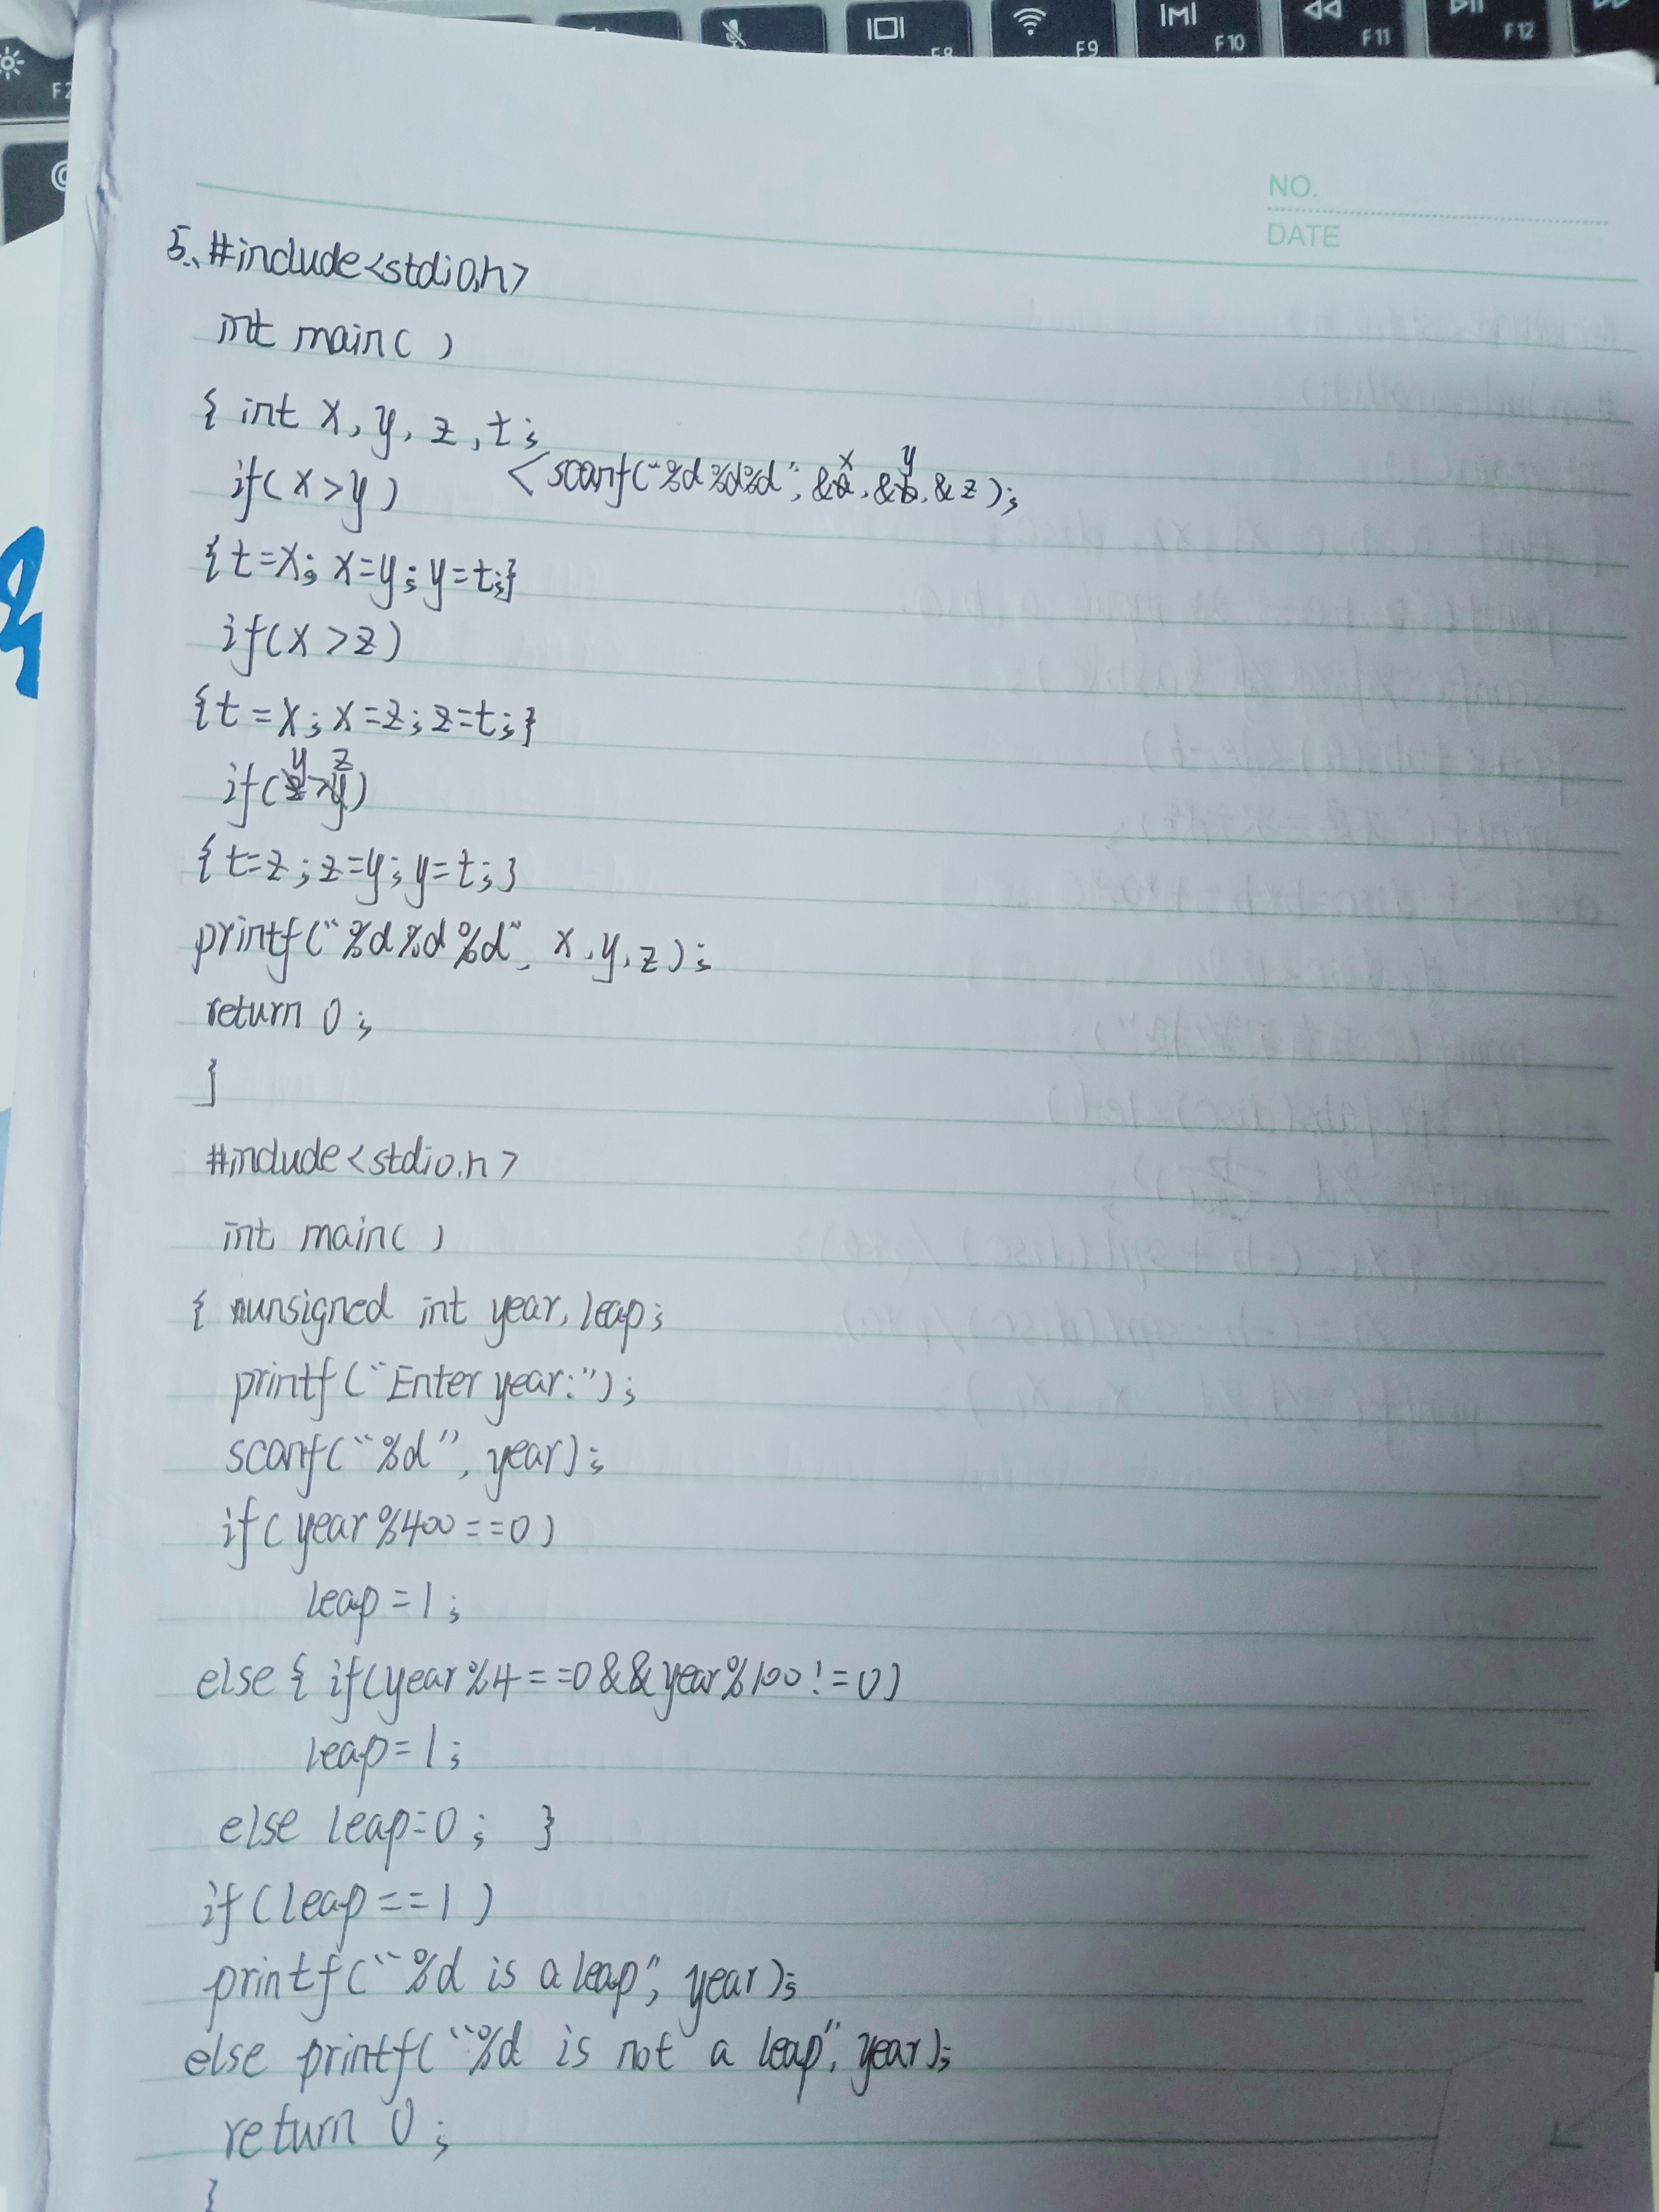 F8
F9
F10
F11
F12
F2
NO.
DATE
5. #include<stdio.h>
int main( )
{ int x, y, z, t;
<scanf("%d%d%d", &x, &y, &z);
if( x>y )
{t=x; x=y; y=t;}
if(x>z)
{t=x; x=z; z=t;}
if(y>z)
{t=z; z=y; y=t;}
printf("%d%d%d", x, y, z);
return 0;
}
#include<stdio.h>
int main( )
{ unsigned int year, leap;
printf("Enter year:");
scanf("%d", year);
if( year%400==0)
leap=1;
else { if(year%4==0&&year%100!=0)
leap=1;
else leap=0; }
if(leap==1)
printf("%d is a leap", year);
else printf("%d is not a leap", year);
return 0;
}